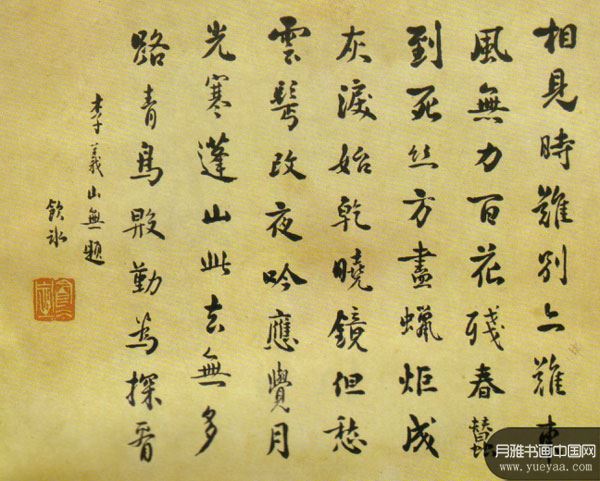 相見時難別亦難東
風無力百花殘春蠶
到死丝方盡蠟炬成
灰淚始乾曉鏡但愁
雲鬢改夜吟應覺月
光寒蓬山此去無多
路青鳥殷勤為探看
李義山無題
飲冰
月雅书画中国网
www.yueyaa.com